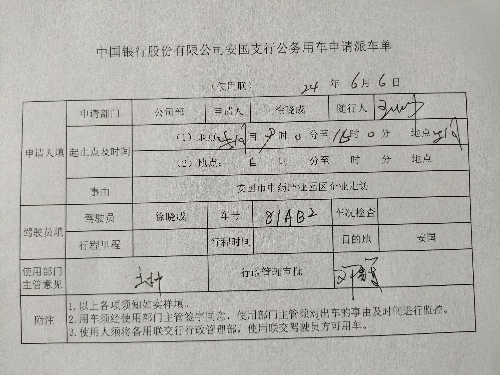 中国银行股份有限公司安国支行公务用车申请派车单
(使用联) 24 年 6 月 6 日
申请人填 申请部门 公司部 申请人 徐晓成 随行人
起止点及时间 (1) 地点: 自 9 时 0 分至 时 0 分 地点
(2) 地点: 自 时 分至 时 分 地点
事由 安国市中药产业园区企业走访
驾驶员填 驾驶员 徐晓成 车号 81AB2 车况检查
行程里程 行程时间 目的地 安国
使用部门主管意见 行政管理审批
附注 1.以上各项须知如实详填。
2.用车须经使用部门主管签字同意,使用部门主管须对出车的事由及时间进行监控。
3.使用人须将备用联交行行政管理部,使用联交驾驶员方可用车。